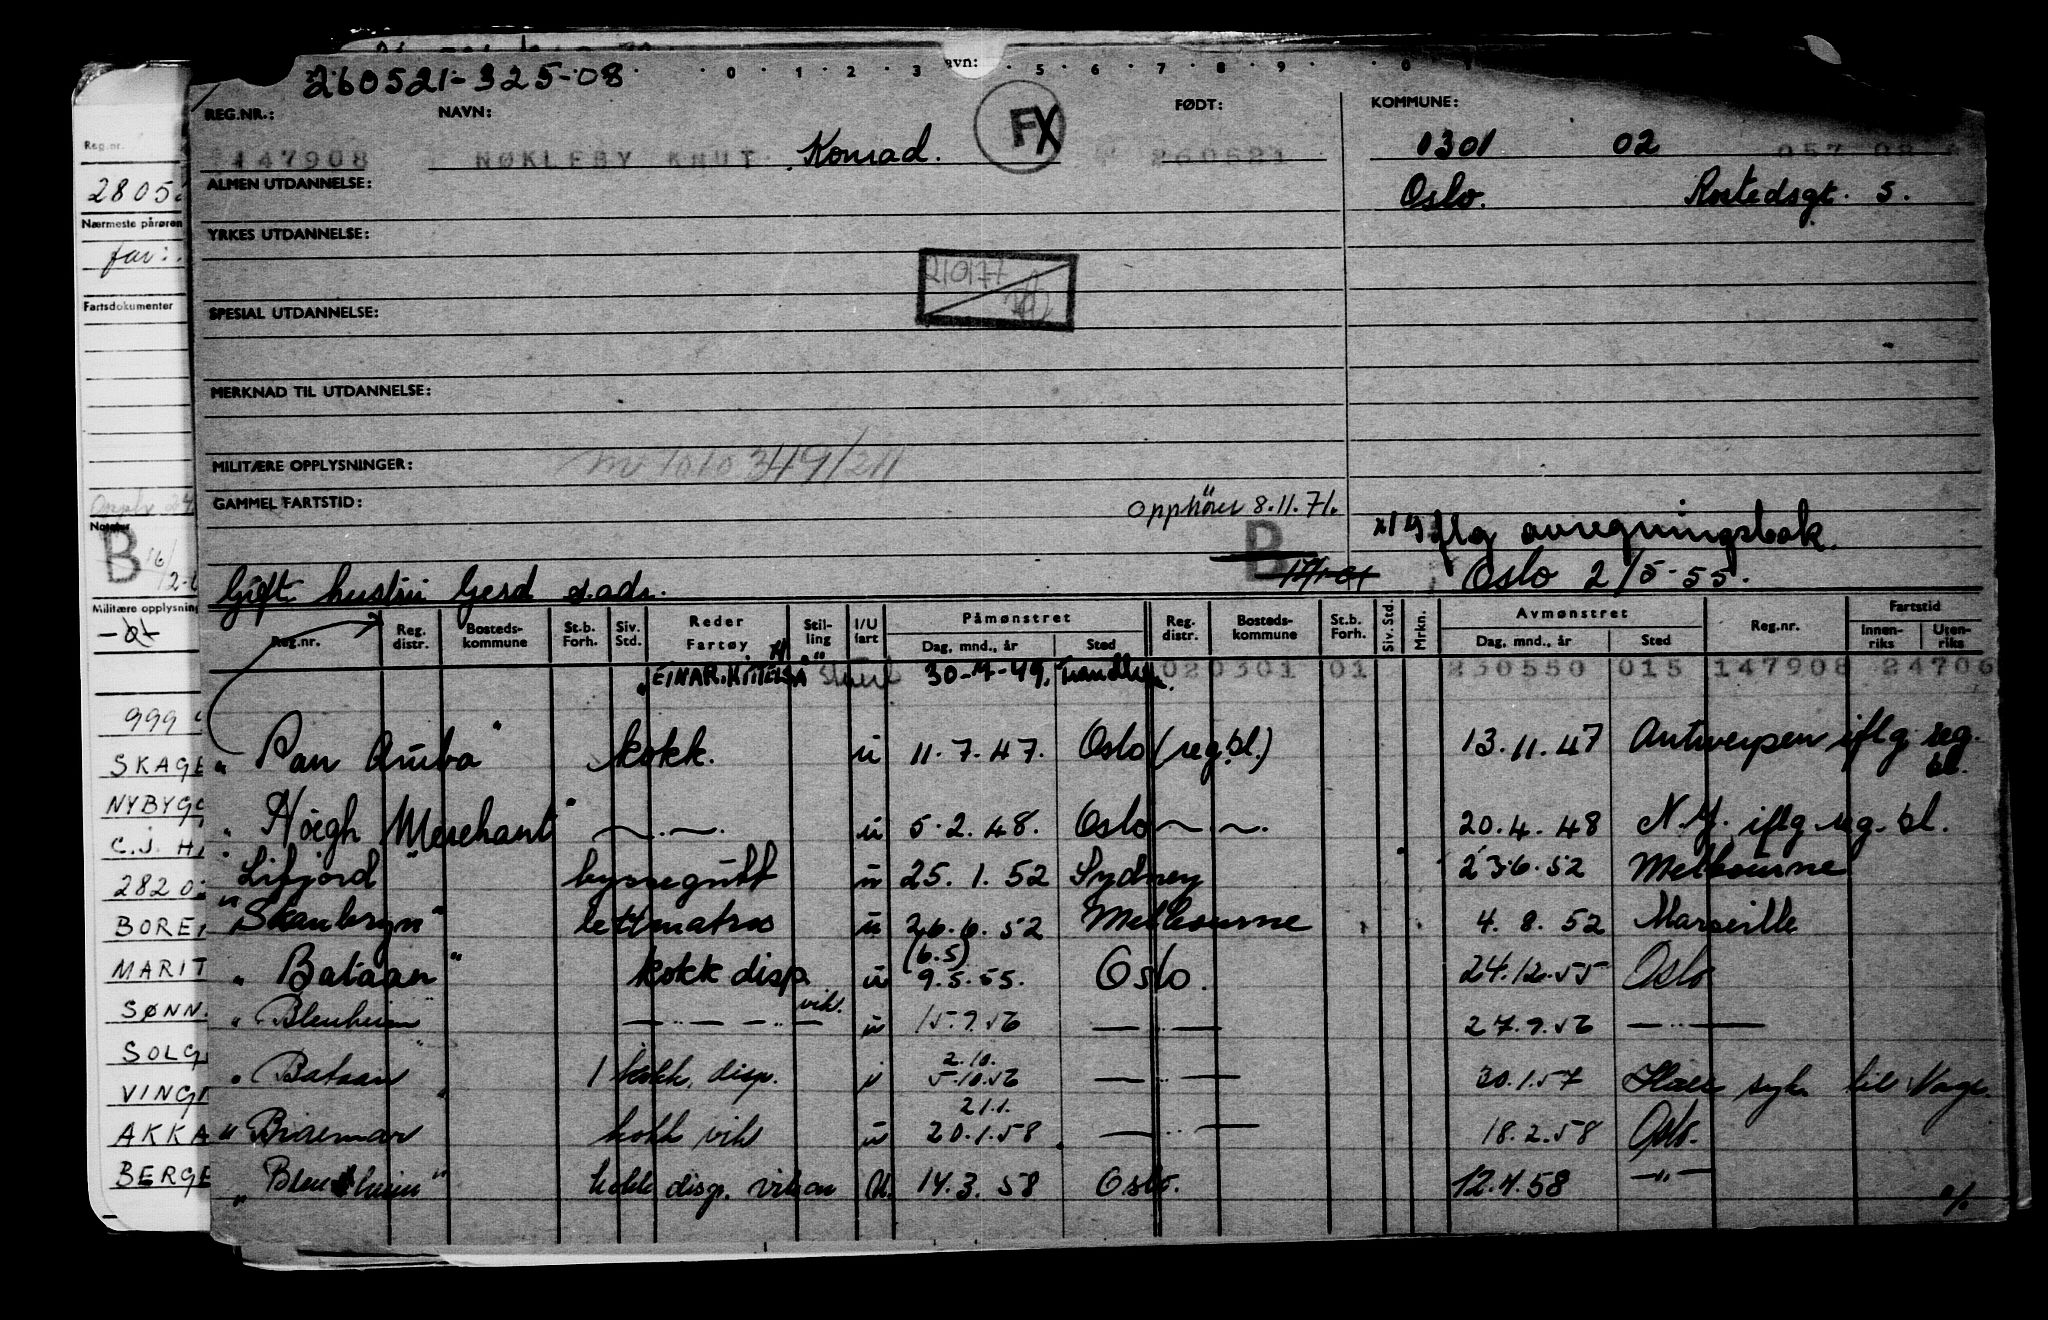 260521-325-08
avn:
0 1 2 3 5 6 7 8 9 0
REG.NR.: NAVN: FX FØDT: KOMMUNE:
147908 NØKLEBY KNUT Konrad. 260521 1301 02 057 08
ALMEN UTDANNELSE: Oslo. Rostedsgt. 5.
YRKES UTDANNELSE:
210177
SPESIAL UTDANNELSE:
MERKNAD TIL UTDANNELSE:
MILITÆRE OPPLYSNINGER: 1010349/211
GAMMEL FARTSTID: Opphører 8.11.71.
B iflg avregningsbok.
Oslo 2/5-55.
Gift. hustru Gerd s.adr.
Reg.nr. Reg. distr. Bosteds- kommune St.b. Forh. Siv. Std. Reder Fartøy Stil- ling I/U fart Påmønstret Dag, mnd., år Sted Reg. distr. Bosteds- kommune St.b. Forh. Siv. Std. Mrkn. Avmønstret Dag, mnd., år Sted Reg.nr. Fartstid Innen- riks Uten- riks
EINAR. 30-4-49. 020301 01 230550 015 147908 24706
" Pan Aruba " kokk. u 11.7.47. Oslo (reg.bl.) 13.11.47 Antwerpen iflg reg. bl.
" Höegh Merchant " —.—. u 5.2.48. Oslo 20.4.48 N.Y. iflg reg. bl.
" Lifjord " byssegutt u 25.1.52 Sydney 23.6.52 Melbourne
" Skaubryn " lettmatros u 26.6.52 Melbourne 4.8.52 Marseille
(6.5)
" Bataan " kokk disp. u 9.5.55. Oslo. 24.12.55 Oslo
" Blenheim " — " — " — vik. u 15.9.56 — " — 27.9.56 — " —
2.10.
" Bataan " 1 kokk. disp. u 5.10.56 — " — 30.1.57 syk til Norge.
21.1.
" Braemar kokk vik u 20.1.58. — " — 18.2.58 Oslo.
" Blenheim " kokk disp. vikar U. 14.3.58 Oslo. 12.4.58 — " —
Reg.nr.
2805
Nærmeste pårøren
far:
Fartsdokumenter
B 16/
2-6
Militære opplysning
999
SKAGE
NYBYGG
C.J. H
282
BORE
MARIT
SØNN
SOLG
VING
AKKA
BERGE